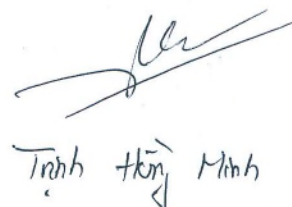 Trịnh Hồng Minh